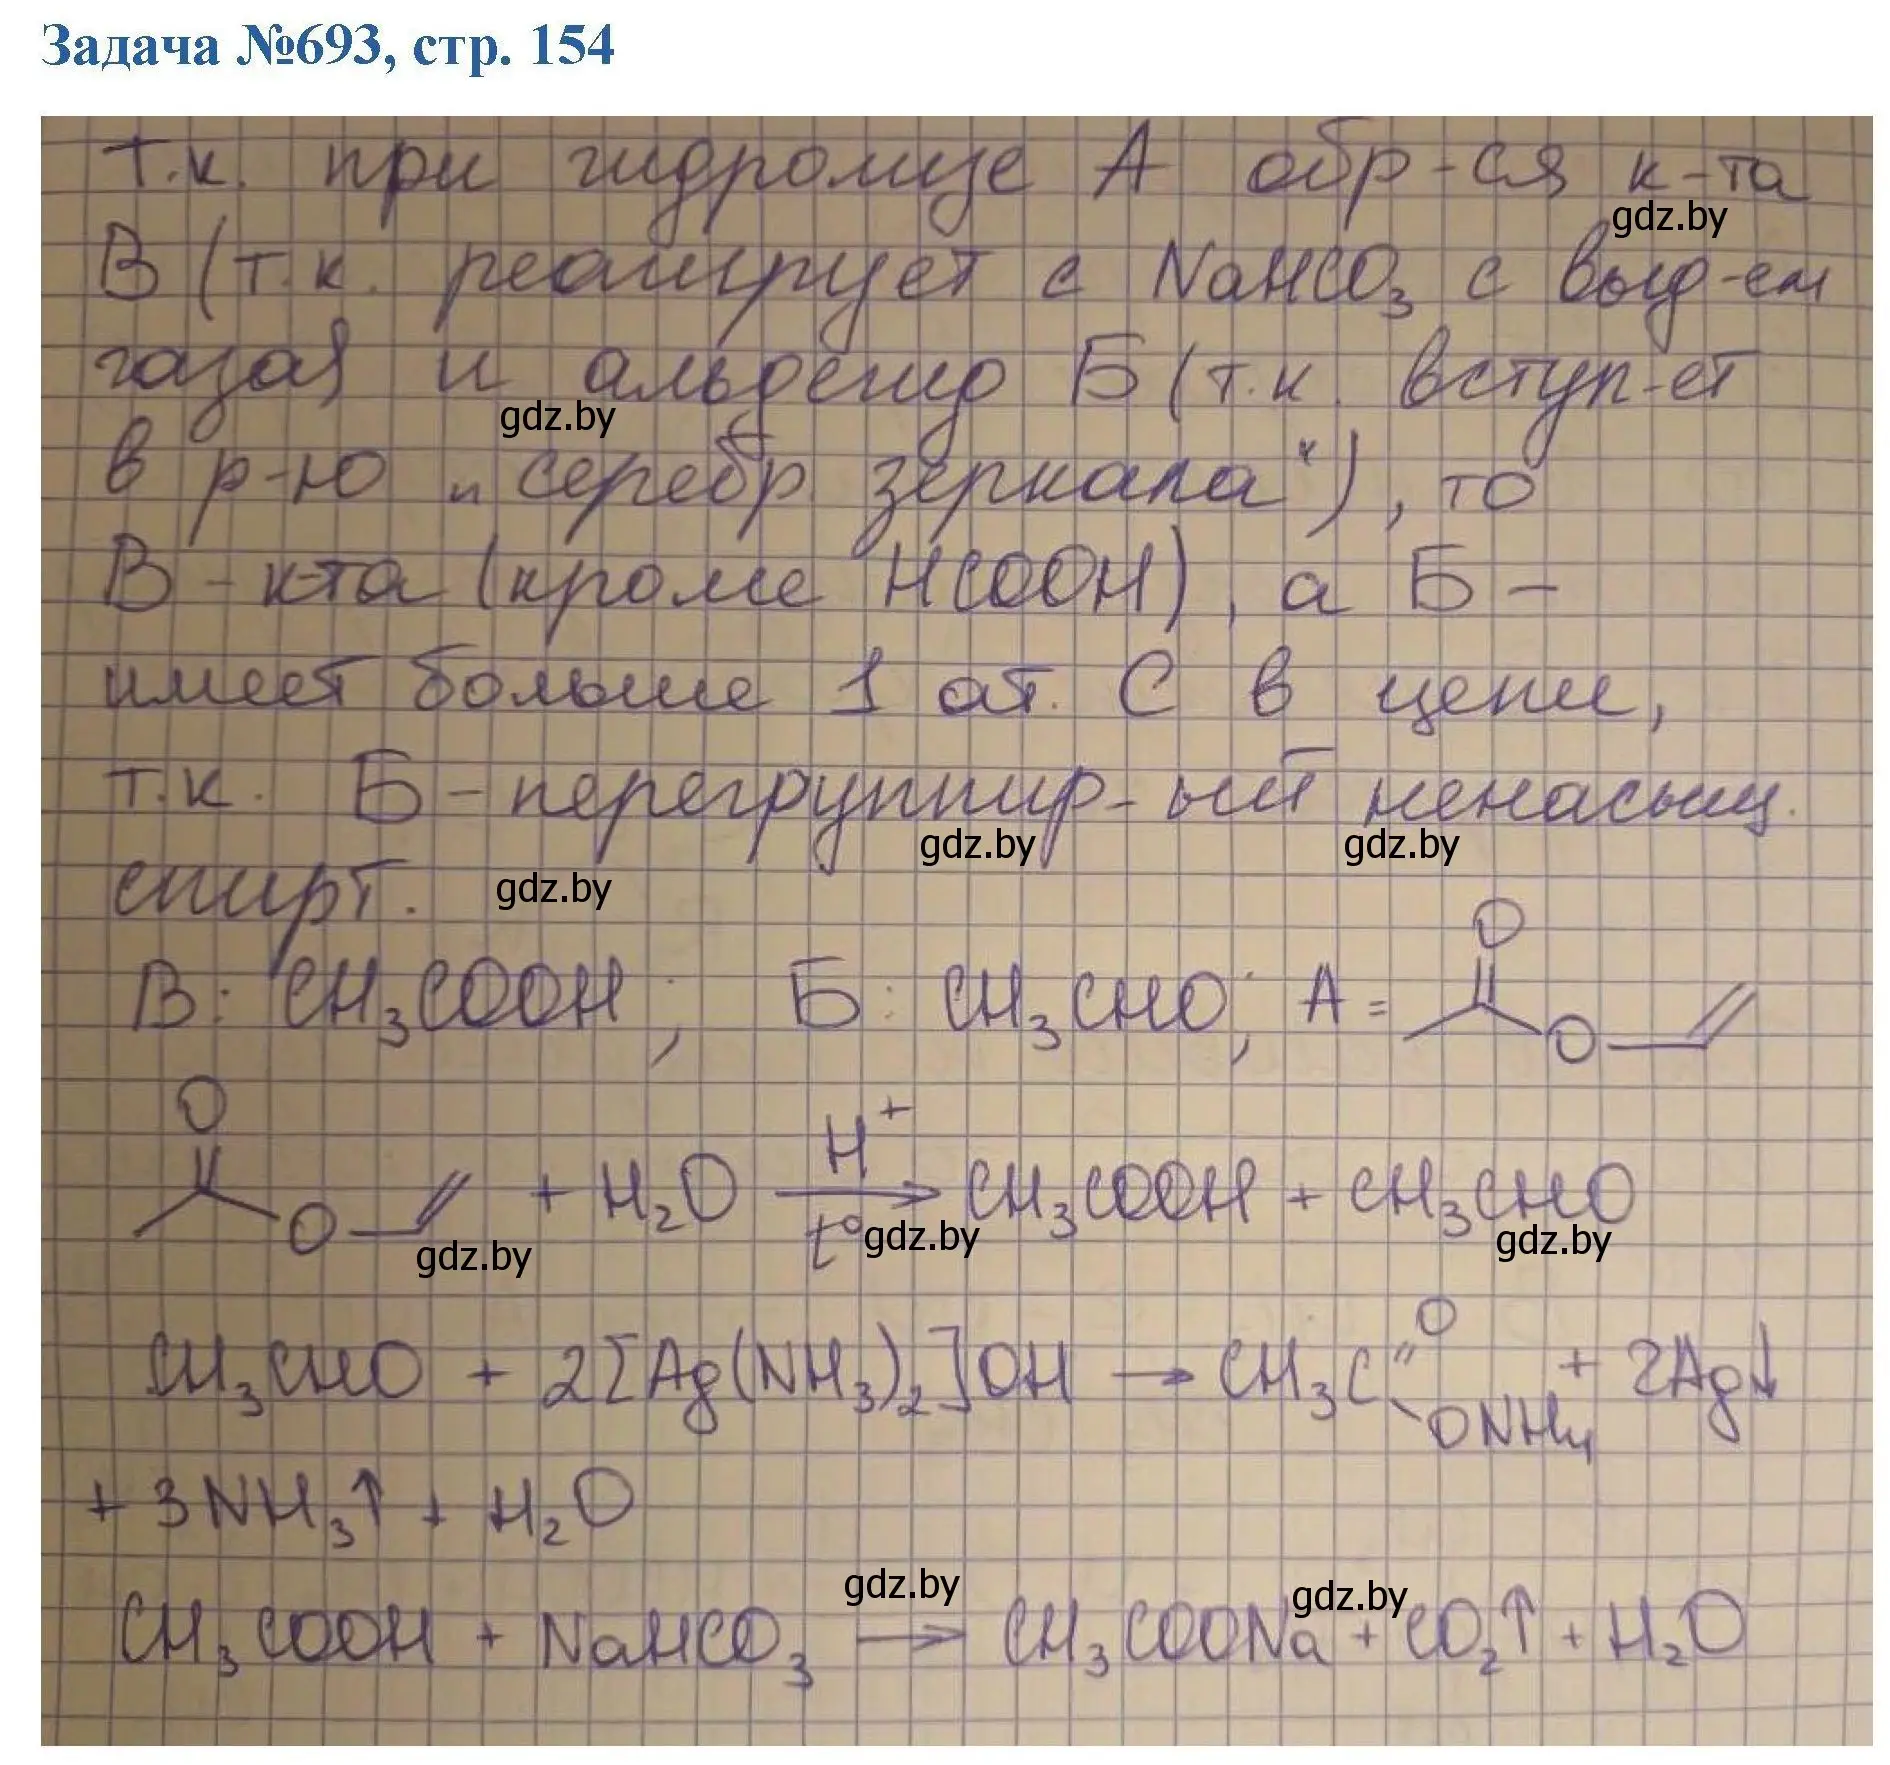 Задача №693, стр. 154
т.к. при гидролизе А обр-ся к-та
gdz.by
В (т.к. реагирует с NaHCO₃ с выд-ем
газа) и альдегид Б (т.к. вступ-ет
gdz.by
в р-ю „серебр зеркала"), то
В - к-та (кроме HCOOH), а Б -
имеет больше 1 ат. С в цепи,
т.к. Б - перегруппир-ый ненасыщ.
gdz.by gdz.by
спирт.
gdz.by
В: CH₃COOH; Б: CH₃CHO; А = O O
O O + H₂O H⁺ t° → CH₃COOH + CH₃CHO
gdz.by gdz.by gdz.by
CH₃CHO + 2[Ag(NH₃)₂]OH → CH₃C O ONH₄ + 2Ag↓
+ 3NH₃↑ + H₂O
gdz.by gdz.by
CH₃COOH + NaHCO₃ → CH₃COONa + CO₂↑ + H₂O